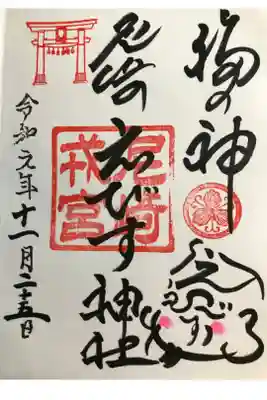 福の神
尼崎えびす神社
尼崎
戎宮
えびす
令和元年十一月二十五日